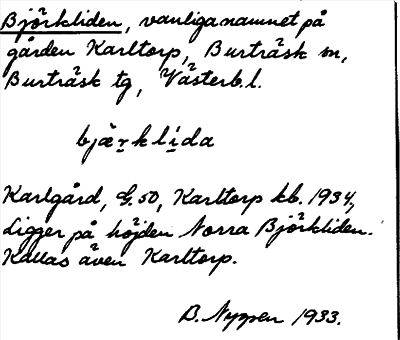 Björkliden, vanliga namnet på
gården Karltorp, Burträsk sn,
Burträsk tg, Västerb.l.
bjær̥klída
Karlgård, G.50, Karltorp kb. 1934,
Ligger på höjden Norra Björkliden.
Kallas även Karltorp.
B. Nyppen 1933.